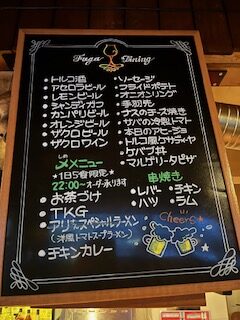 Fuga Dining
• トルコ酒
• アセロラビール
• レモンビール
• シャンディガフ
• カンパリビール
• オレンジビール
• ザクロビール
• ザクロワイン
• ソーセージ
• フライドポテト
• オニオンリング
• 手羽先
• ナスのチーズ焼き
• サバの冷製トマト
• 本日のアヒージョ
• トルコ風ケサディヤ
• ケバブ丼
• マルゲリータピザ
〆メニュー
★1日5食限定★
22:00〜オーダー承ります
• お茶づけ
• TKG
• アリさんスペシャルラーメン
(洋風トマトスープラーメン)
• チキンカレー
串焼き
• レバー • チキン
• ハツ • ラム
Cheers